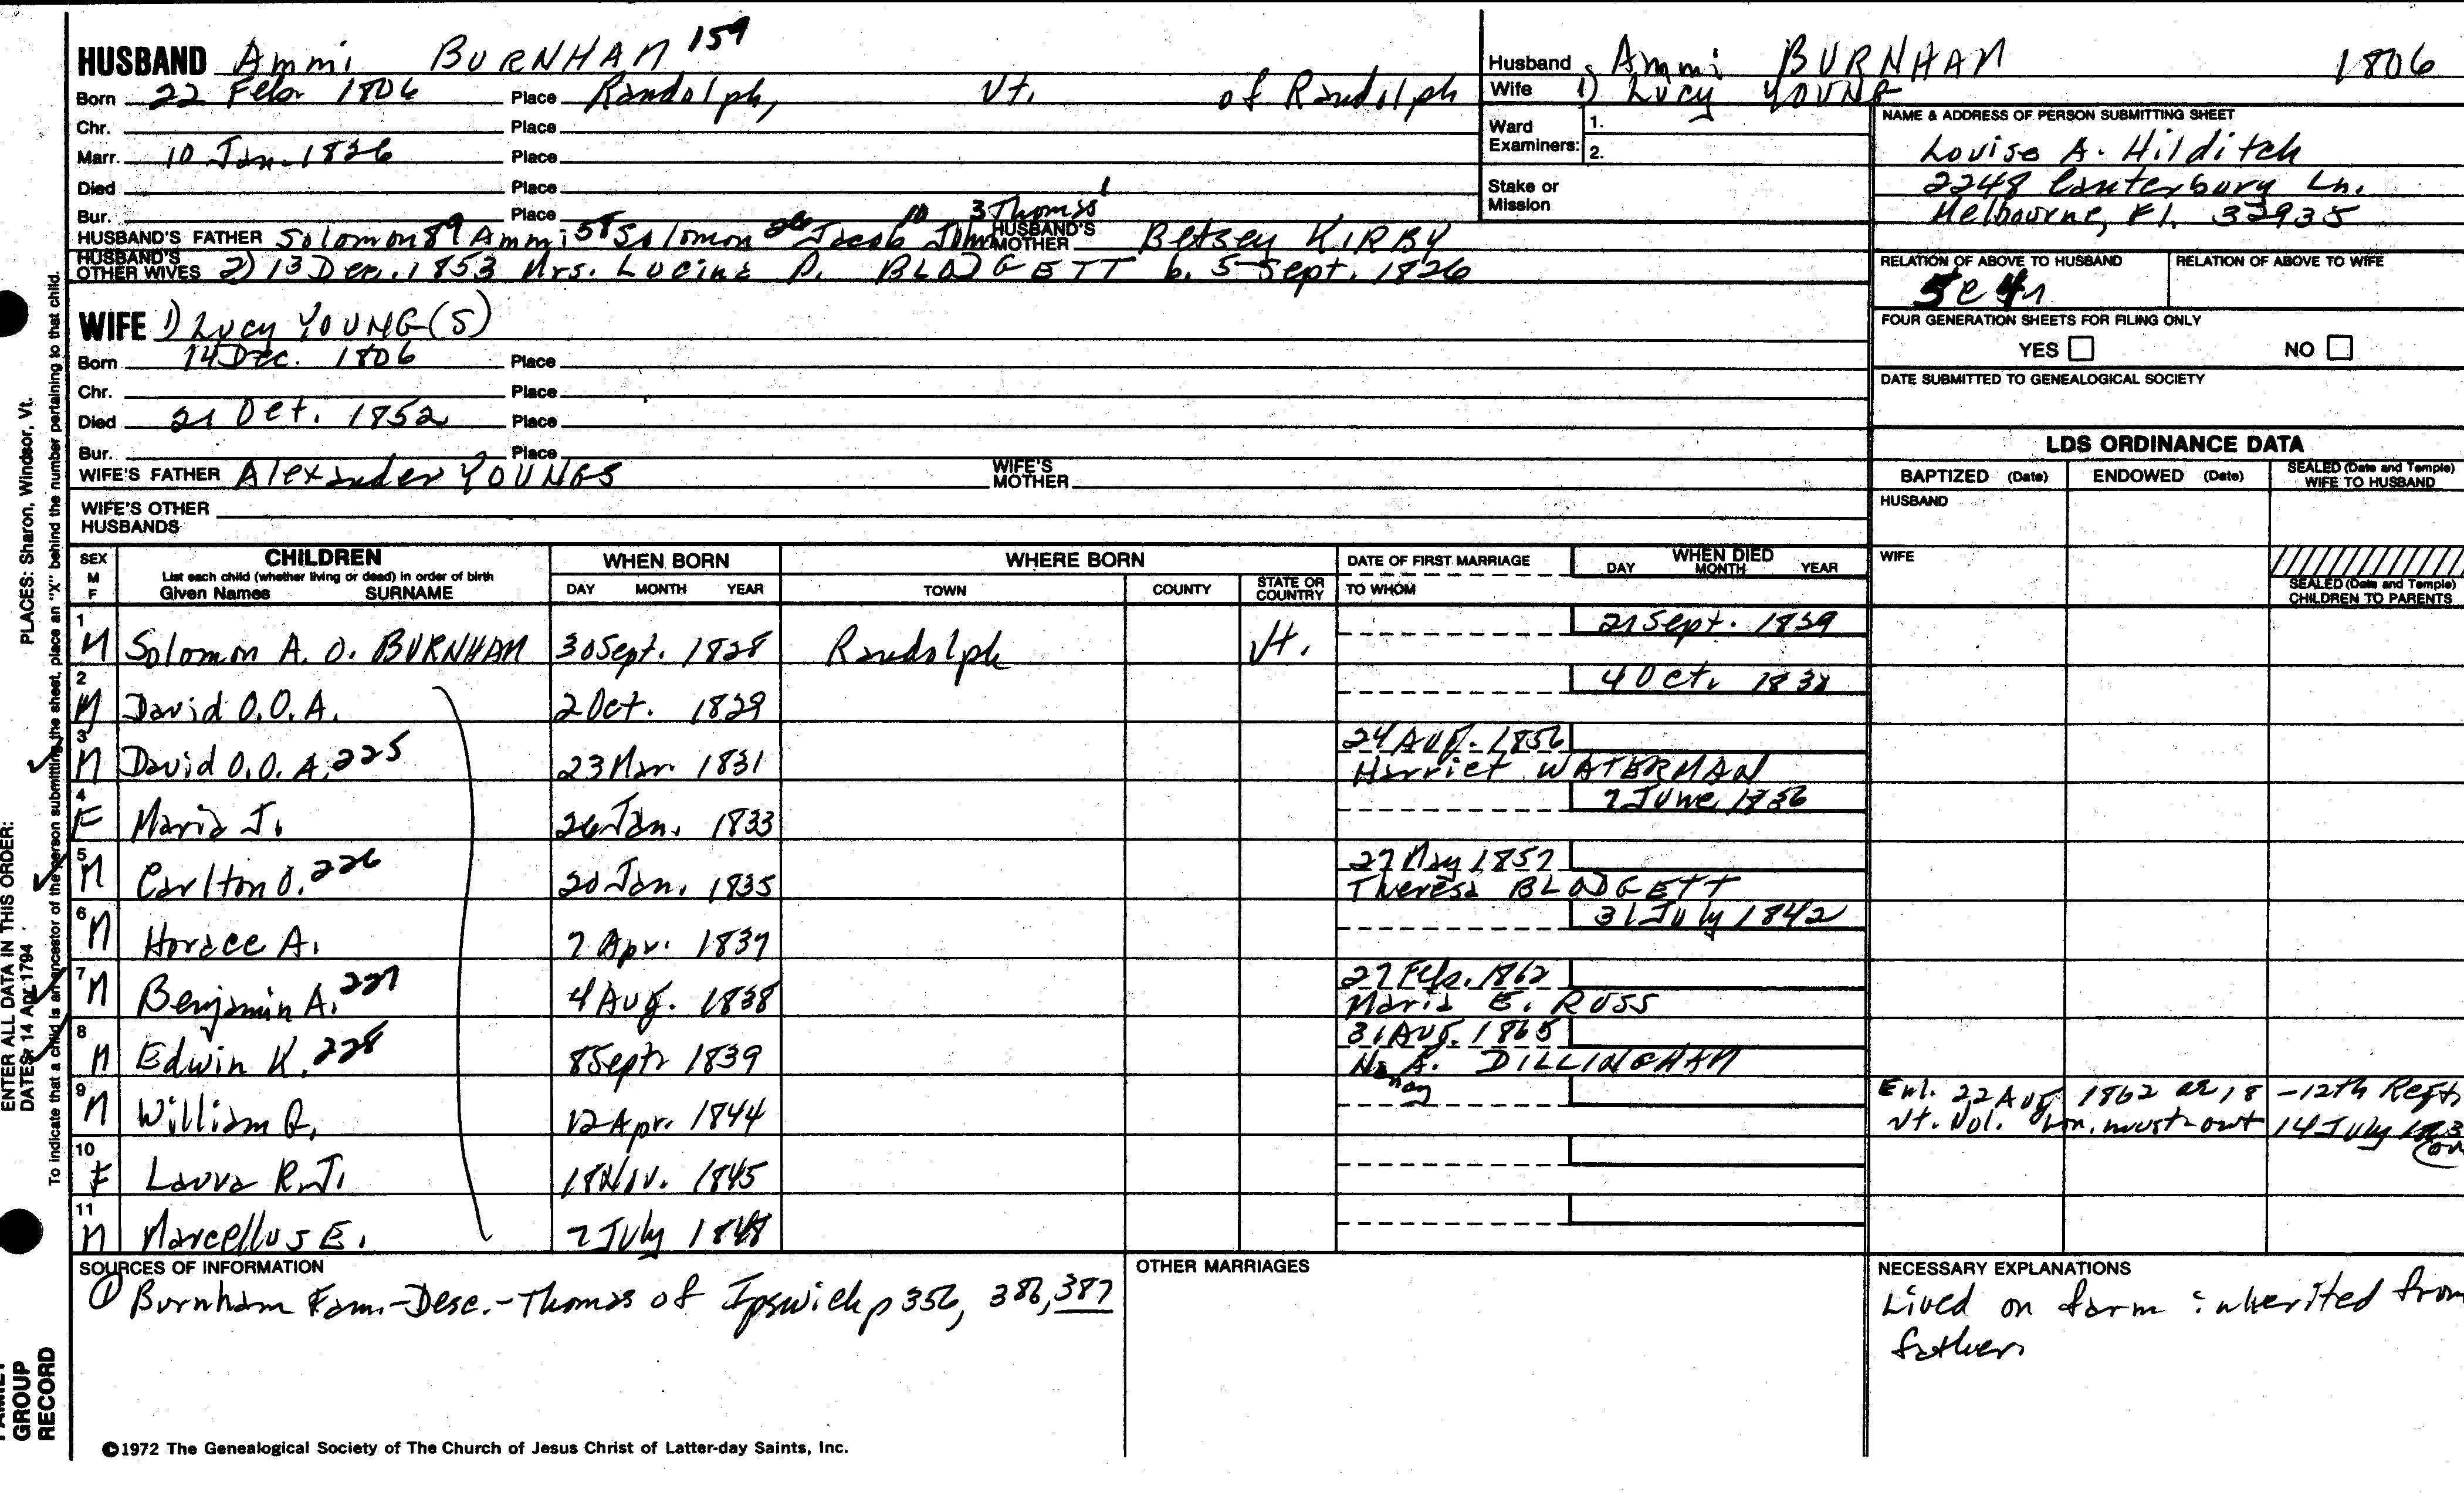 HUSBAND Ammi BURNHAM 159
Born 22 Feb 1806 Place Randolph, Vt. of Randolph
Chr. Place
Marr. 10 Jan. 1826 Place
Died Place
Bur. Place
HUSBAND'S FATHER Solomon 89 Ammi 58 Solomon 26 Jacob 10 John 3 Thomas 1 HUSBAND'S MOTHER Betsey KIRBY
HUSBAND'S OTHER WIVES 2) 13 Dec. 1853 Mrs. Lucina P. BLODGETT b. 5 Sept. 1826
WIFE 1) Lucy YOUNG(S)
Born 14 Dec. 1806 Place
Chr. Place
Died 21 Oct. 1852 Place
Bur. Place
WIFE'S FATHER Alexander YOUNGS WIFE'S MOTHER
WIFE'S OTHER HUSBANDS
Husband Ammi BURNHAM 1806
Wife 1) Lucy YOUNG
Ward Examiners: 1.
2.
Stake or Mission
NAME & ADDRESS OF PERSON SUBMITTING SHEET
Louise A. Hilditch
2248 Canterbury Ln.
Melbourne, Fl. 32935
RELATION OF ABOVE TO HUSBAND RELATION OF ABOVE TO WIFE
FOUR GENERATION SHEETS FOR FILING ONLY
YES NO
DATE SUBMITTED TO GENEALOGICAL SOCIETY
LDS ORDINANCE DATA
BAPTIZED (Date) ENDOWED (Date) SEALED (Date and Temple) WIFE TO HUSBAND
HUSBAND
WIFE
SEALED (Date and Temple) CHILDREN TO PARENTS
SEX M F CHILDREN WHEN BORN WHERE BORN DATE OF FIRST MARRIAGE WHEN DIED
List each child (whether living or dead) in order of birth
Given Names SURNAME DAY MONTH YEAR TOWN COUNTY STATE OR COUNTRY TO WHOM DAY MONTH YEAR
1 M Solomon A. O. BURNHAM 30 Sept. 1828 Randolph Vt. 21 Sept. 1839
2 M David O.O.A. 2 Oct. 1829 4 Oct. 1838
3 M David O.O.A. 225 23 Mar 1831 24 Aug. 1856
Harriet WATERMAN
4 F Maria J. 26 Jan. 1833 7 June 1836
5 M Carlton O. 226 20 Jan. 1835 27 May 1857
Theresa BLODGETT
6 M Horace A. 7 Apr. 1837 31 July 1842
7 M Benjamin A. 227 4 Aug. 1838 27 Feb. 1862
Maria E. ROSS
8 M Edwin K. 228 8 Sept 1839 31 Aug. 1865
Nancy A. DILLINGHAM
9 M William Q. 12 Apr. 1844 Enl. 22 Aug 1862 ae 18 - 12th Regt,
Vt. Vol. hon. must-out 14 July
10 F Laura R.J. 18 Nov. 1845
11 M Marcellus E. 7 July 1848
SOURCES OF INFORMATION
① Burnham Fam.-Desc.-Thomas of Ipswich p 356, 386, 387
OTHER MARRIAGES
NECESSARY EXPLANATIONS
Lived on farm inherited from
father
©1972 The Genealogical Society of The Church of Jesus Christ of Latter-day Saints, Inc.
PLACES: Sharon, Windsor, Vt.
ENTER ALL DATA IN THIS ORDER:
DATES: 14 Apr 1794
To indicate that a child is an ancestor of the person submitting the sheet, place an "X" behind the number pertaining to that child.
FAMILY GROUP RECORD